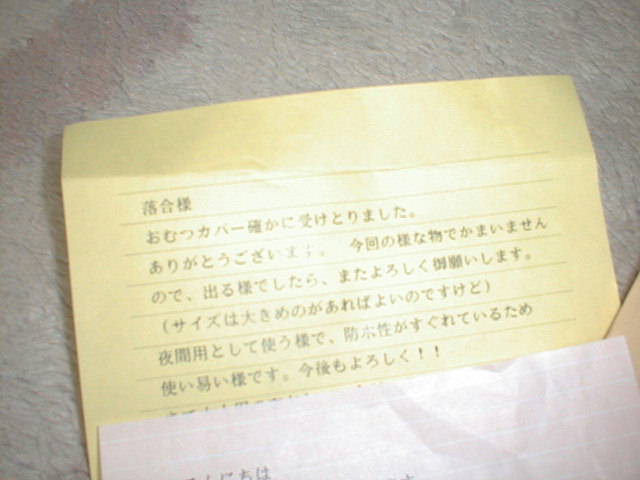 落合様
おむつカバー確かに受けとりました。
ありがとうございます。 今回の様な物でかまいません
ので、出る様でしたら、またよろしく御願いします。
(サイズは大きめのがあればよいのですけど)
夜間用として使う様で、防水性がすぐれているため
使い易い様です。今後もよろしく!!
にちは